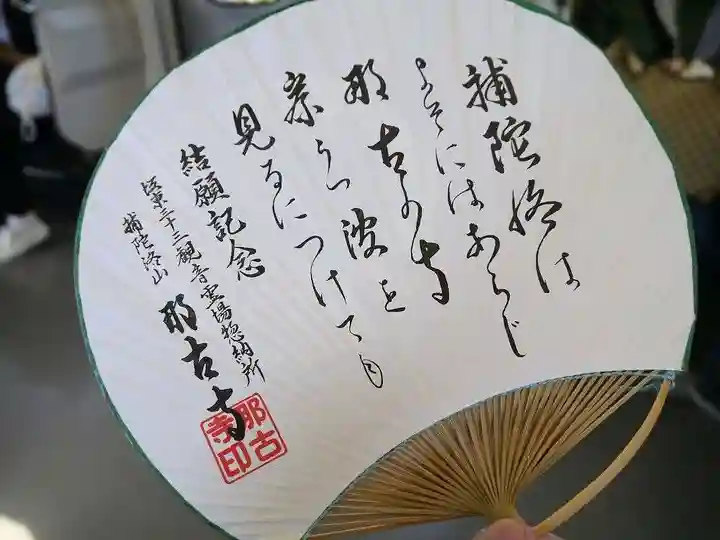 補陀洛は
よそにはあらじ
那古の寺
岸うつ波を
見るにつけても
結願記念
坂東三十三観音霊場惣納所
補陀洛山 那古寺
那古寺印